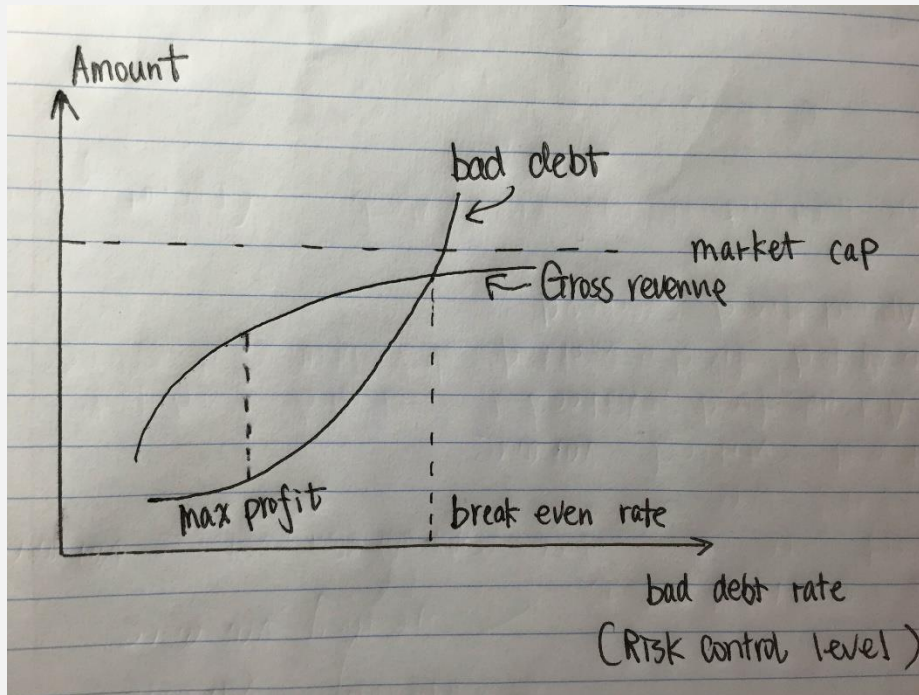 Amount
bad debt
market cap
Gross revenue
max profit
break even rate
bad debt rate
(Risk control level)